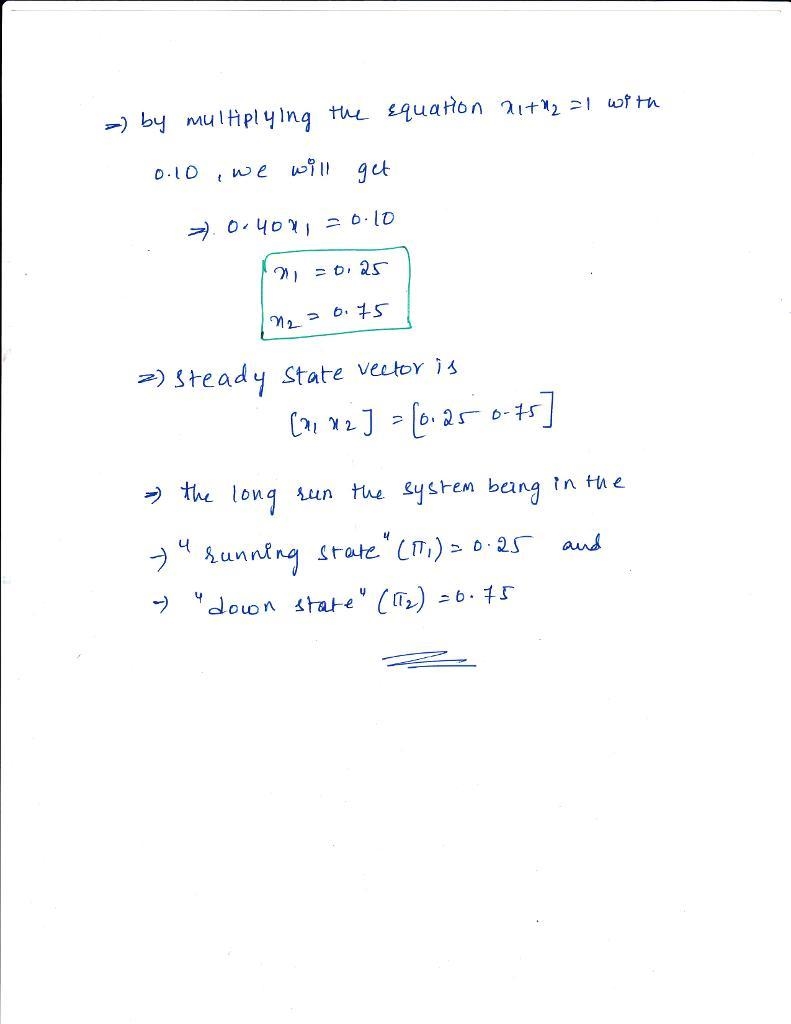 ⇒ by multiplying the equation x1+x2 =1 with
0.10 , we will get
⇒ 0.40x1 = 0.10
x1 = 0.25
x2 = 0.75
⇒ steady state vector is
[x1 x2] = [0.25 0.75]
⇒ the long run the system being in the
→ "running state" (π1) = 0.25 and
→ "down state" (π2) = 0.75